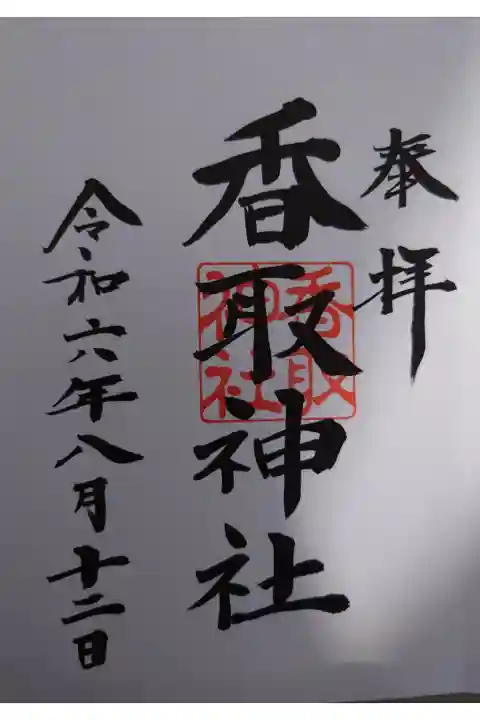 奉拝
香取神社
香取神社
令和六年八月十二日